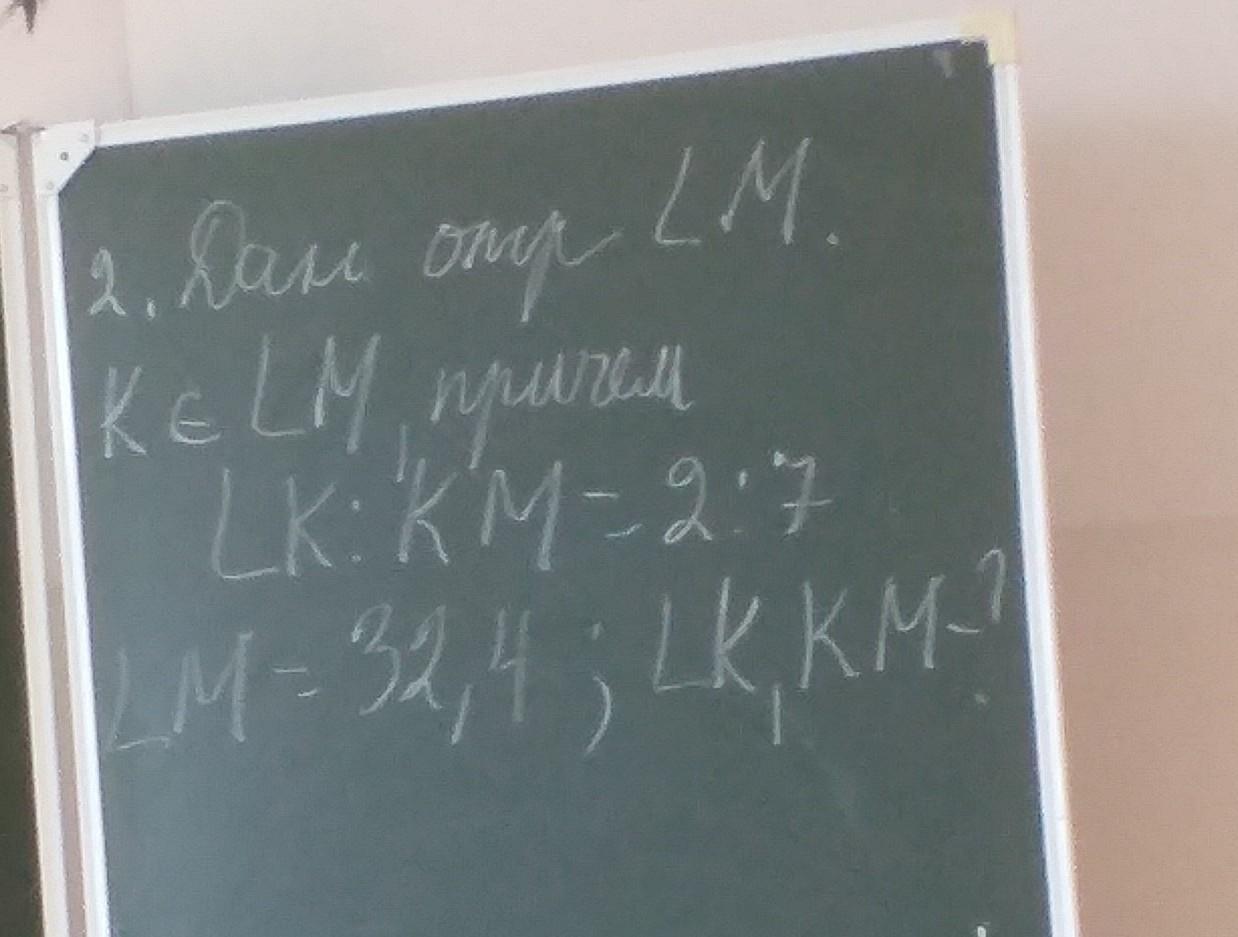 2. Дан отр LM.
K ∈ LM, причем
LK : KM = 2 : 7
LM = 32,4 ; LK, KM - ?